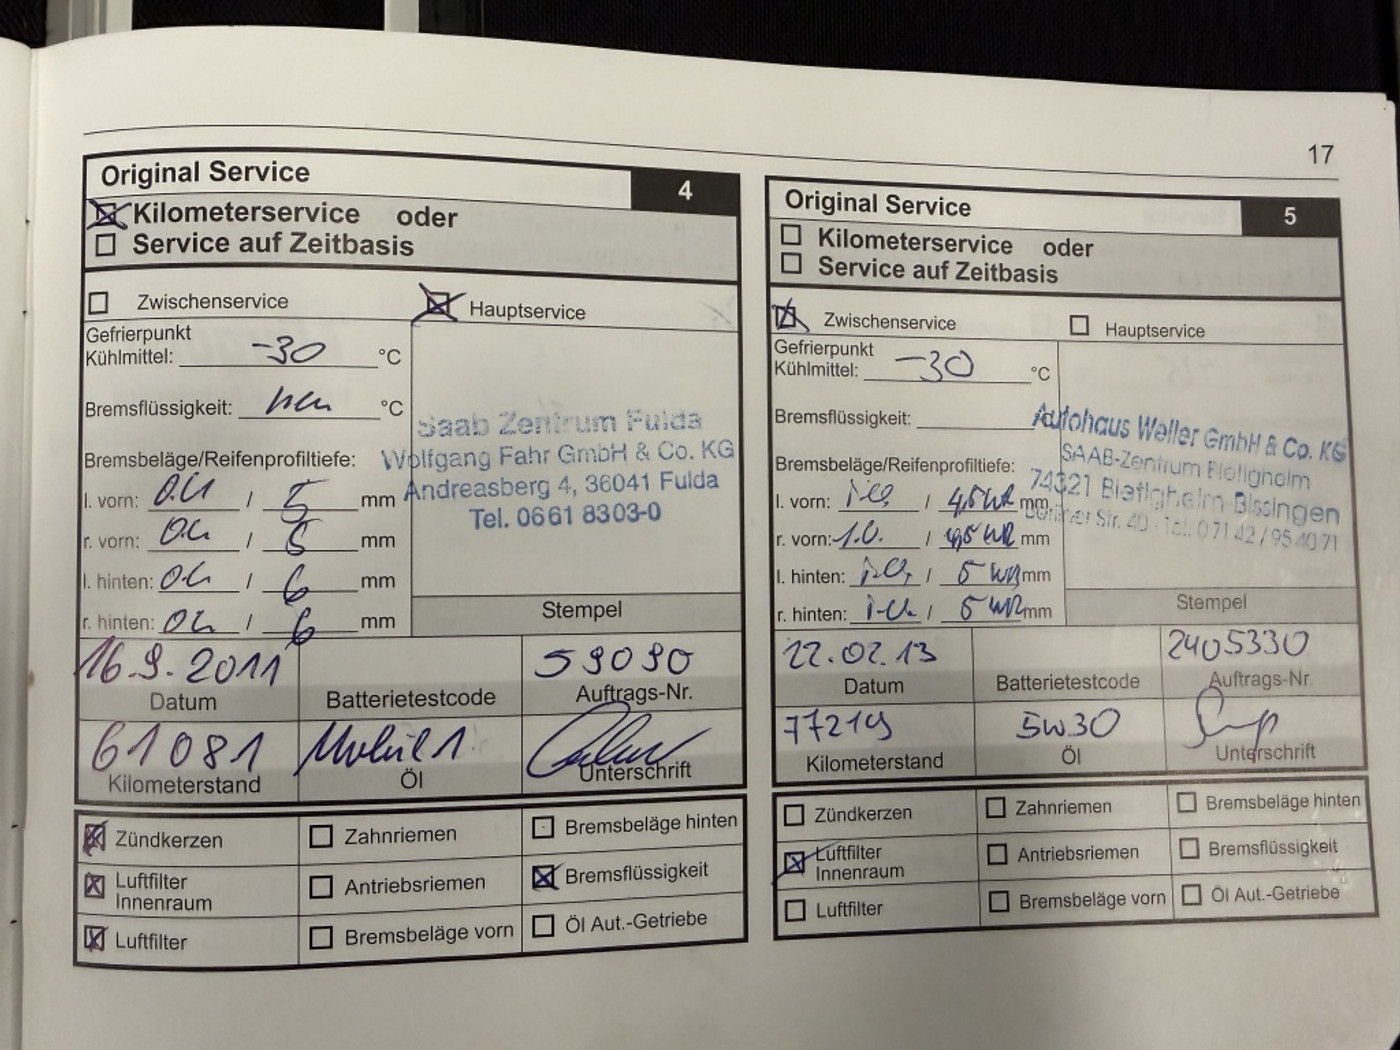 17
Original Service 4
Kilometerservice oder
Service auf Zeitbasis
Zwischenservice Hauptservice
Gefrierpunkt
Kühlmittel: -30 °C
Bremsflüssigkeit: neu °C
Bremsbeläge/Reifenprofiltiefe:
l. vorn: O.k / 5 mm
r. vorn: O.k / 5 mm
l. hinten: O.k / 6 mm
r. hinten: O.k / 6 mm
Saab Zentrum Fulda
Wolfgang Fahr GmbH & Co. KG
Andreasberg 4, 36041 Fulda
Tel. 0661 8303-0
Stempel
16.9.2011 59090
Datum Batterietestcode Auftrags-Nr.
61081 Mobil 1
Kilometerstand Öl Unterschrift
Zündkerzen Zahnriemen Bremsbeläge hinten
Luftfilter Innenraum Antriebsriemen Bremsflüssigkeit
Luftfilter Bremsbeläge vorn Öl Aut.-Getriebe
Original Service 5
Kilometerservice oder
Service auf Zeitbasis
Zwischenservice Hauptservice
Gefrierpunkt
Kühlmittel: -30 °C
Bremsflüssigkeit:
Bremsbeläge/Reifenprofiltiefe:
l. vorn: i.O. / 4,5 WR mm
r. vorn: i.O. / 4,5 WR mm
l. hinten: i.O. / 5 WR mm
r. hinten: i.O. / 5 WR mm
Autohaus Weller GmbH & Co. KG
SAAB-Zentrum Bietigheim
74321 Bietigheim-Bissingen
Berliner Str. 40 · Tel. 0 71 42 / 95 40 71
Stempel
22.02.13 2405330
Datum Batterietestcode Auftrags-Nr.
77219 5W30
Kilometerstand Öl Unterschrift
Zündkerzen Zahnriemen Bremsbeläge hinten
Luftfilter Innenraum Antriebsriemen Bremsflüssigkeit
Luftfilter Bremsbeläge vorn Öl Aut.-Getriebe